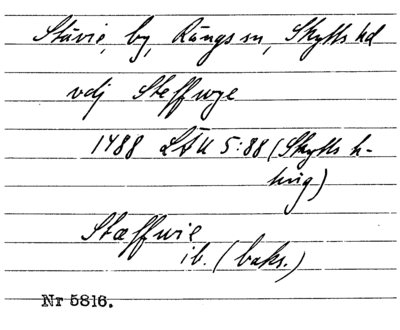 Stävie, by, Rängs sn, Skytts hd
vdj Steffwye
1488 LÄU 5:88 (Skytts h-
hng)
Stæffwie
ib. (baks.)
Nr 5816.